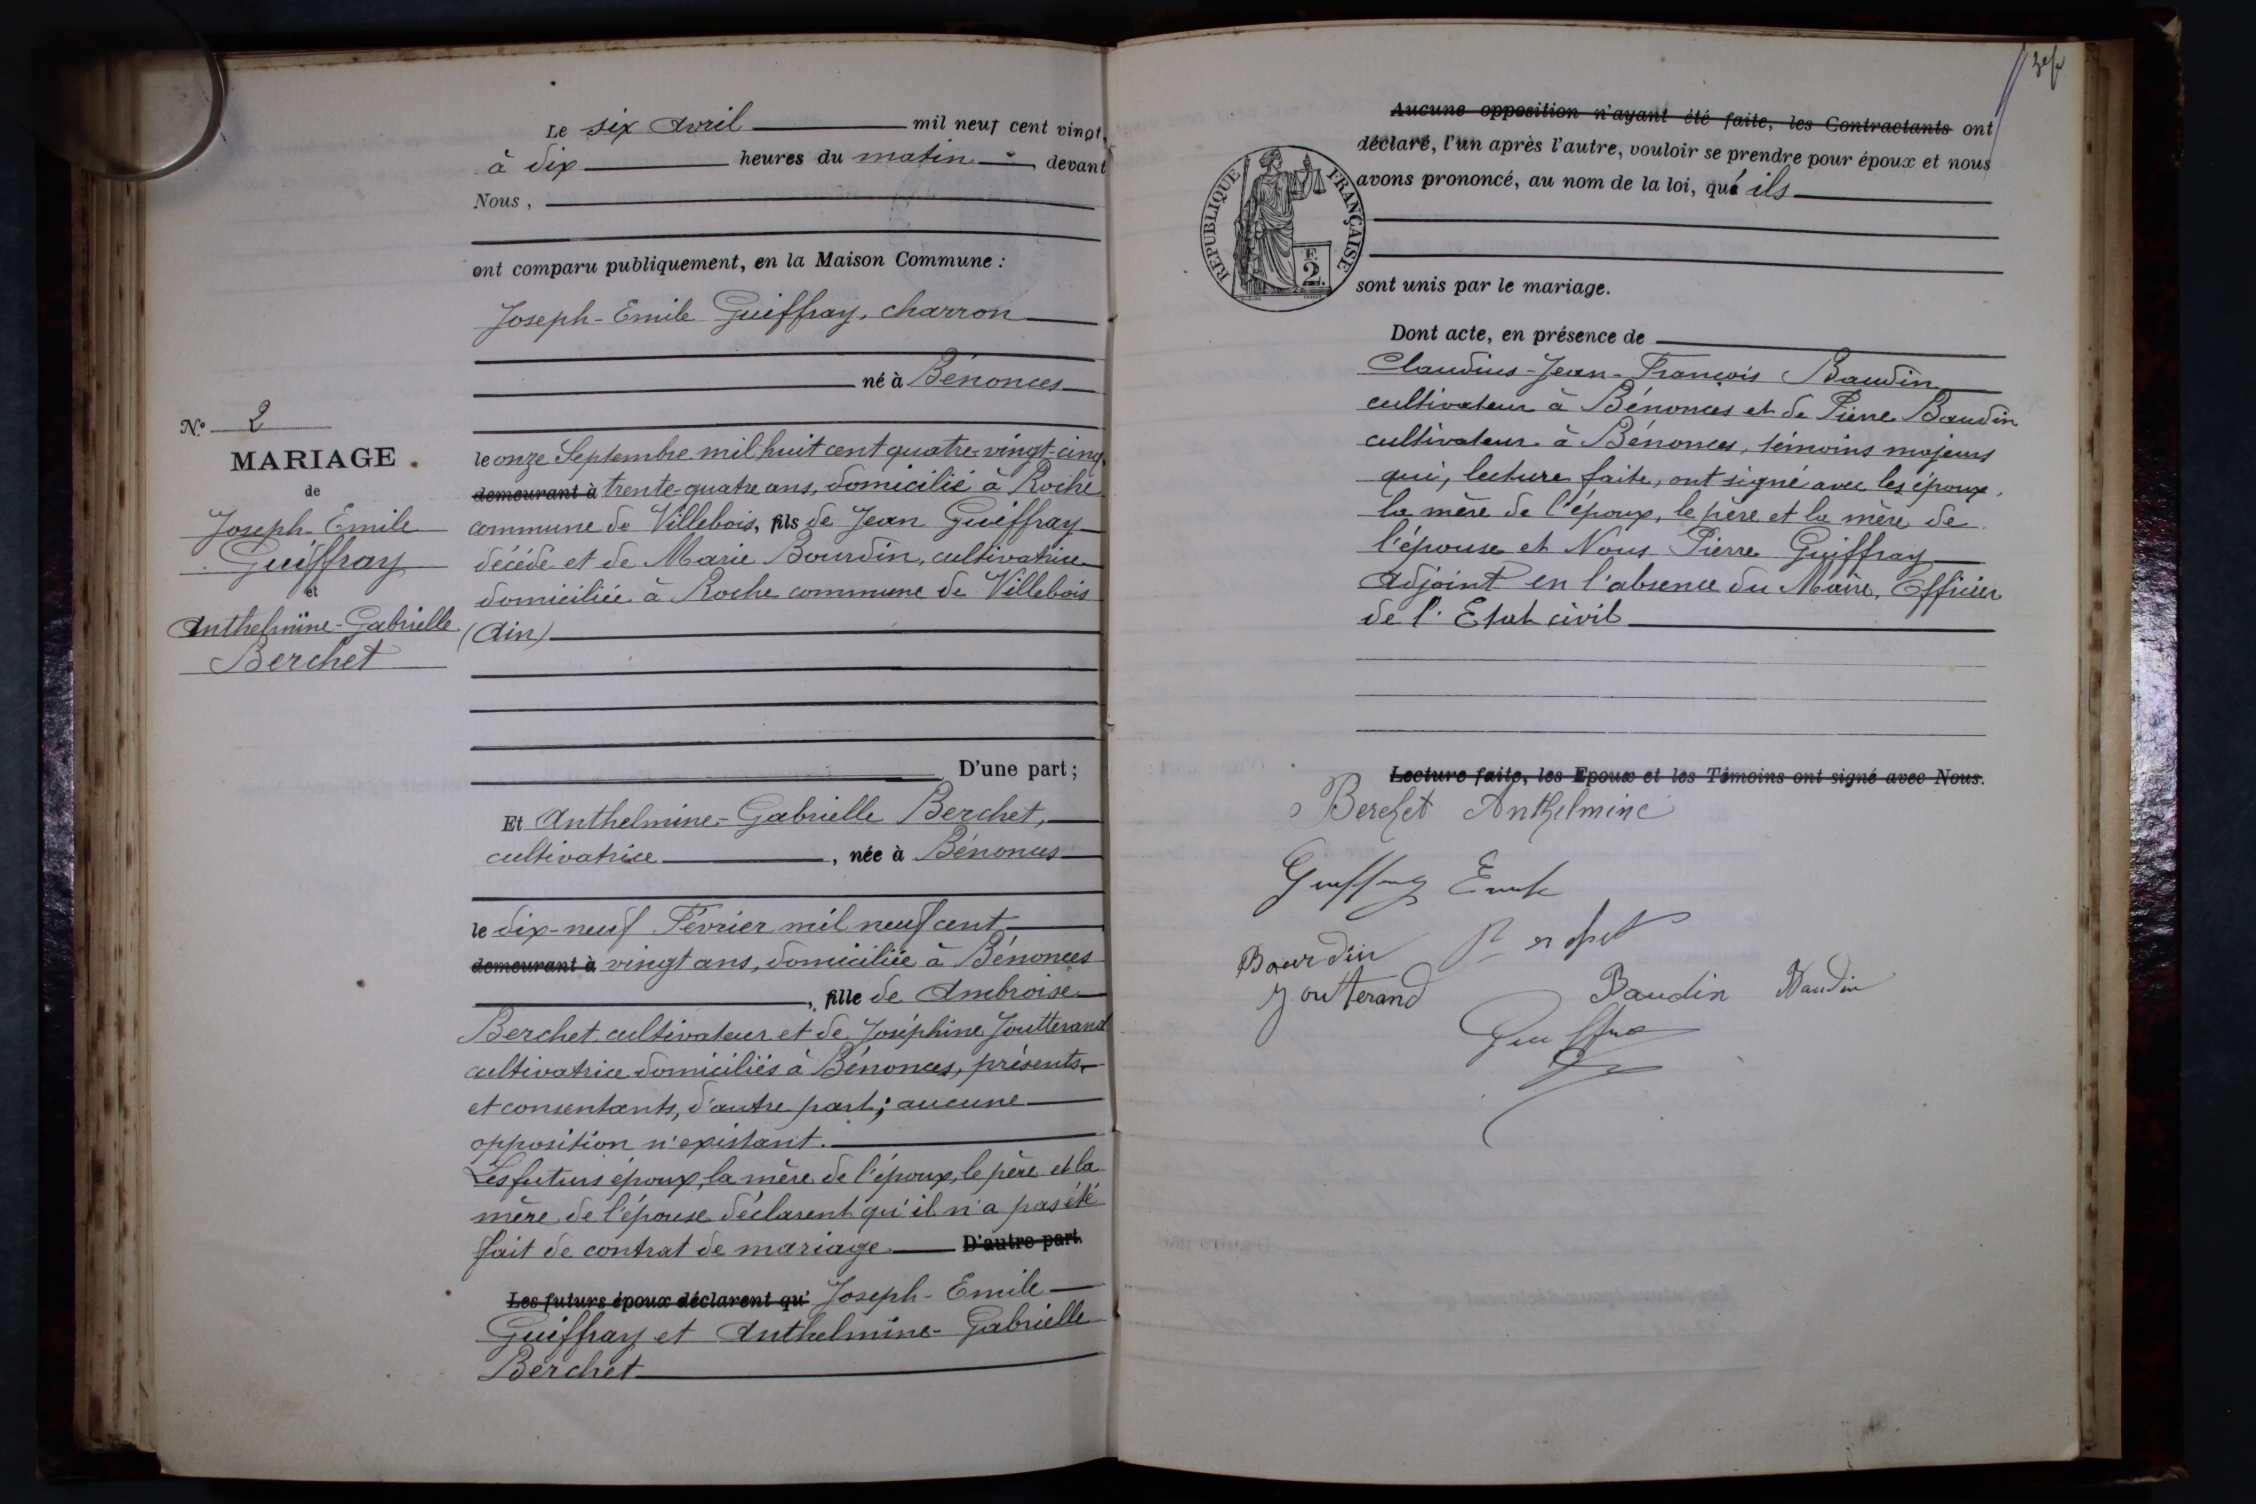 Le six Avril mil neuf cent vingt,
à dix heures du matin, devant
Nous,
ont comparu publiquement, en la Maison Commune :
Joseph-Emile Guiffray, charron
né à Bénonces
le onze Septembre mil huit cent quatre-vingt-cinq,
demeurant à trente-quatre ans, domicilié à Roche
commune de Villebois, fils de Jean Guiffray
décédé et de Marie Bourdin, cultivatrice
domiciliée à Roche commune de Villebois
(Ain)
D'une part ;
Et Anthelmine-Gabrielle Berchet,
cultivatrice, née à Bénonces
le dix-neuf Février mil neuf cent
demeurant à vingt ans, domiciliée à Bénonces
, fille de Ambroise
Berchet cultivateur et de Joséphine Joutterand
cultivatrice domiciliés à Bénonces, présents
et consentants, d'autre part ; aucune
opposition n'existant.
Les futurs époux, la mère de l'époux, le père et la
mère de l'épouse déclarent qu'il n'a pas été
fait de contrat de mariage. D'autre part.
Les futurs époux déclarent qu' Joseph-Emile
Guiffray et Anthelmine-Gabrielle
Berchet
N.° 2
MARIAGE
de
Joseph-Emile
Guiffray
et
Anthelmine-Gabrielle
Berchet
Aucune opposition n'ayant été faite, les Contractants ont
déclaré, l'un après l'autre, vouloir se prendre pour époux et nous
avons prononcé, au nom de la loi, qu' ils
RÉPUBLIQUE FRANÇAISE
F.
2.
sont unis par le mariage.
Dont acte, en présence de
Claudius-Jean-François Baudin
cultivateur à Bénonces et de Pierre Baudin
cultivateur à Bénonces, témoins majeurs
qui, lecture faite, ont signé avec les époux,
la mère de l'époux, le père et la mère de
l'épouse et Nous Pierre Guiffray
Adjoint en l'absence du Maire, Officier
de l'Etat civil
Lecture faite, les Epoux et les Témoins ont signé avec Nous.
Berchet Anthelmine
Guiffray Emile
Bourdin Berchet
Joutterand Baudin Baudin
Guiffray